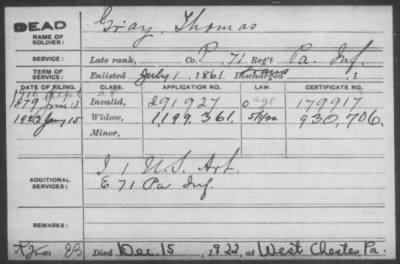 DEAD
NAME OF SOLDIER: Gray, Thomas
SERVICE: Late rank, Co. P, 71 Reg't Pa. Inf.
TERM OF SERVICE: Enlisted July 1, 1861 Discharged , 1
DATE OF FILING. CLASS. APPLICATION NO. LAW. CERTIFICATE NO.
1879 June 13 Invalid, 291927 179917
1923 Jany 15 Widow, 1,199,361. 930,706.
Minor,
ADDITIONAL SERVICES: I 1 U.S. Art.
E 71 Pa Inf.
REMARKS:
Died Dec. 15, 1922, at West Chester, Pa.